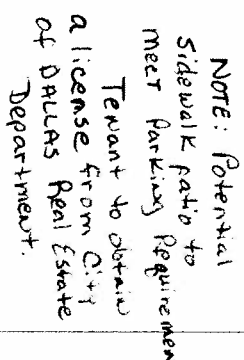 NOTE: Potential
Sidewalk patio to
meet Parking Requiremen
Tenant to obtain
a license from City
of DALLAS Real Estate
Department.